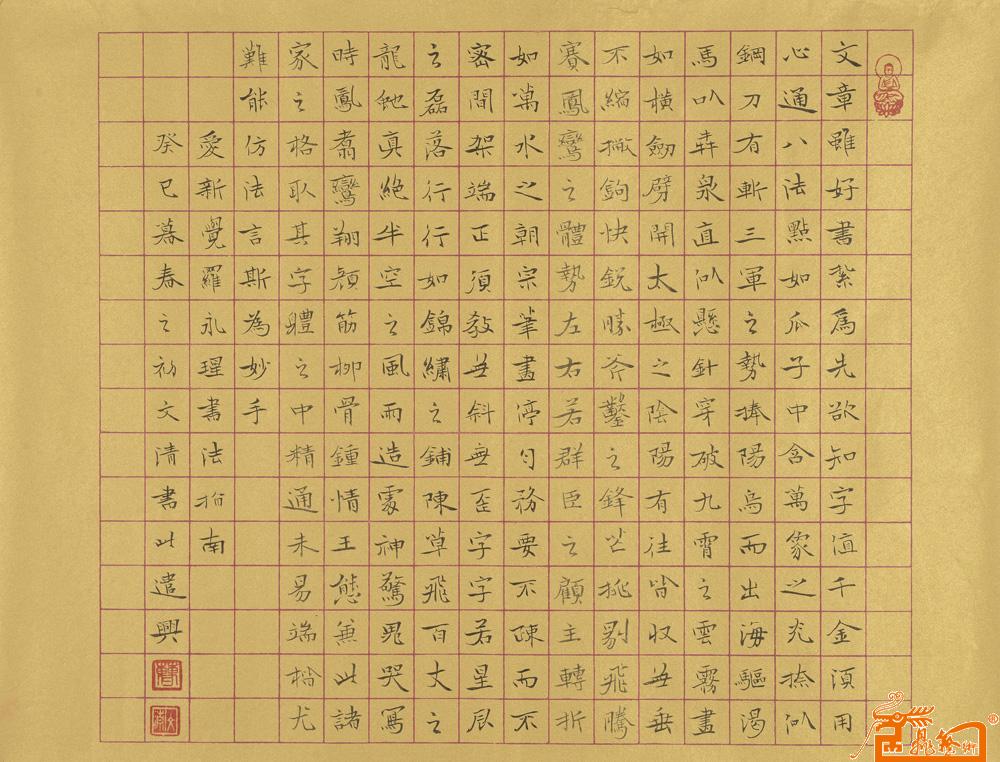 文章雖好書紮爲先欲知字值千金須用
心通八法點如瓜子中含萬象之充捺似
鋼刀有斬三軍之勢捧陽烏而出海驅渴
馬以犇泉直似懸針穿破九霄之雲霧畫
如橫劒劈開太極之陰陽有往皆收無垂
不縮撇鉤快銳勝斧鑿之鋒芒挑剔飛騰
賽鳳鸞之體勢左右若群臣之顧主轉折
如萬水之朝宗筆畫渟勻務要不疎而不
密間架端正須教無斜無歪字字若星辰
之磊落行行如錦繡之鋪陳草飛百丈之
龍虵真絕半空之風雨造處神驚鬼哭寫
時鳳翥鸞翔顏筋柳骨鍾情王態兼此諸
家之格取其字軆之中精通未易端楷尤
難能仿法言斯為妙手
愛新覺羅永瑆書法指南
癸巳暮春之初文清書此遣興